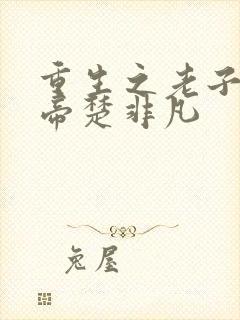 重生之老子
帝楚非凡
兔屋